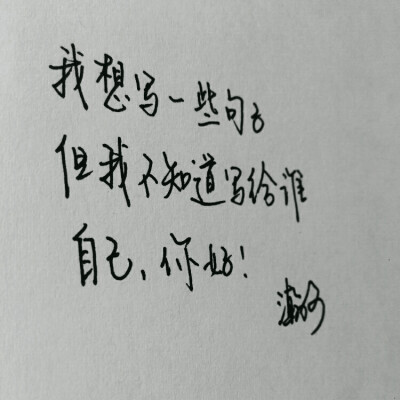 我想写一些句子
但我不知道写给谁
自己，你好！